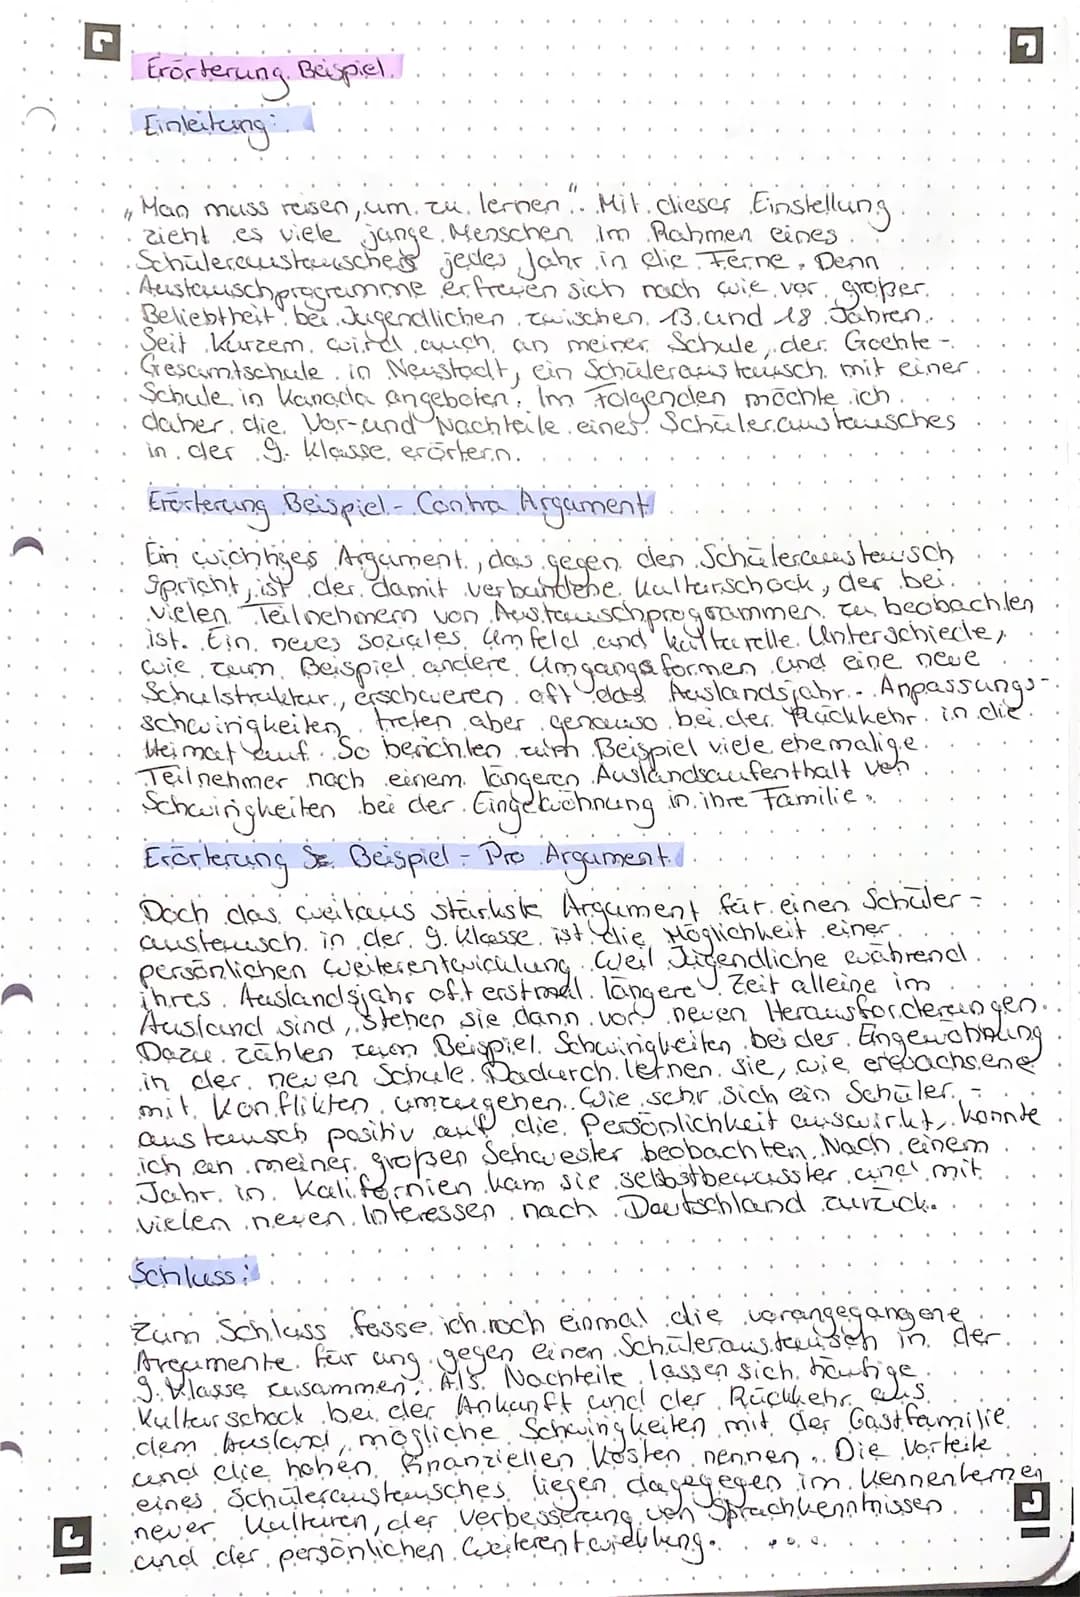 Erörterung Beispiel
Einleitung:
„Man muss reisen, um zu lernen". Mit dieser Einstellung
zieht es viele junge Menschen im Rahmen eines
Schüleraustausches jedes Jahr in die Ferne. Denn
Austauschprogramme erfreuen sich nach wie vor großer
Beliebtheit bei Jugendlichen zwischen 13 und 18 Jahren.
Seit Kurzem wird auch an meiner Schule, der Goehte-
Gesamtschule in Neustadt, ein Schüleraustausch mit einer
Schule in Kanada angeboten. Im Folgenden möchte ich
daher die Vor- und Nachteile eines Schüleraustausches
in der 9. Klasse erörtern.
Erörterung Beispiel - Contra Argument
Ein wichtiges Argument, das gegen den Schüleraustausch
spricht, ist der damit verbundene Kulturschock, der bei
vielen Teilnehmern von Austauschprogrammen zu beobachten
ist. Ein neues soziales Umfeld und kulturelle Unterschiede,
wie zum Beispiel andere Umgangsformen und eine neue
Schulstruktur, erschweren oft das Auslandsjahr. Anpassungs-
schwirigkeiten treten aber genauso bei der Rückkehr in die
Heimat auf. So berichten zum Beispiel viele ehemalige
Teilnehmer nach einem längeren Auslandsaufenthalt von
Schwirigkeiten bei der Eingewöhnung in ihre Familie.
Erörterung Beispiel - Pro Argument
Doch das weitaus stärkste Argument für einen Schüler-
austausch in der 9. Klasse ist die Möglichkeit einer
persönlichen Weiterentwicklung. Weil Jugendliche während
ihres Auslandsjahr oft erstmal längere Zeit alleine im
Ausland sind, stehen sie dann vor neuen Herausforderungen.
Dazu zählen zum Beispiel Schwirigkeiten bei der Eingewöhnung
in der neuen Schule. Dadurch lernen sie, wie erwachsene
mit Konflikten umzugehen. Wie sehr sich ein Schüler-
austausch positiv auf die Persönlichkeit auswirkt, konnte
ich an meiner großen Schwester beobachten. Nach einem
Jahr in Kalifornien kam sie selbstbewusster und mit
vielen neuen Interessen nach Deutschland zurück.
Schluss:
Zum Schluss fasse ich noch einmal die vorangegangene
Argumente für ung gegen einen Schüleraustausch in der
9. Klasse zusammen. Als Nachteile lassen sich häufige
Kulturschock bei der Ankunft und der Rückkehr aus
dem Ausland, mögliche Schwirigkeiten mit der Gastfamilie
und die hohen finanziellen Kosten nennen. Die Vorteile
eines Schüleraustausches liegen dagegegen im Kennenlernen
neuer Kulturen, der Verbesserung von Sprachkenntnissen
und der persönlichen Weiterentwicklung.